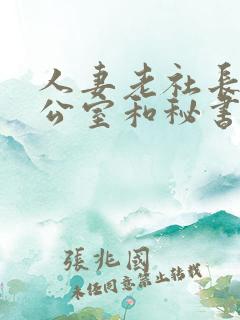 人妻老社长
公室和秘书
張兆國
未经同意禁止转载